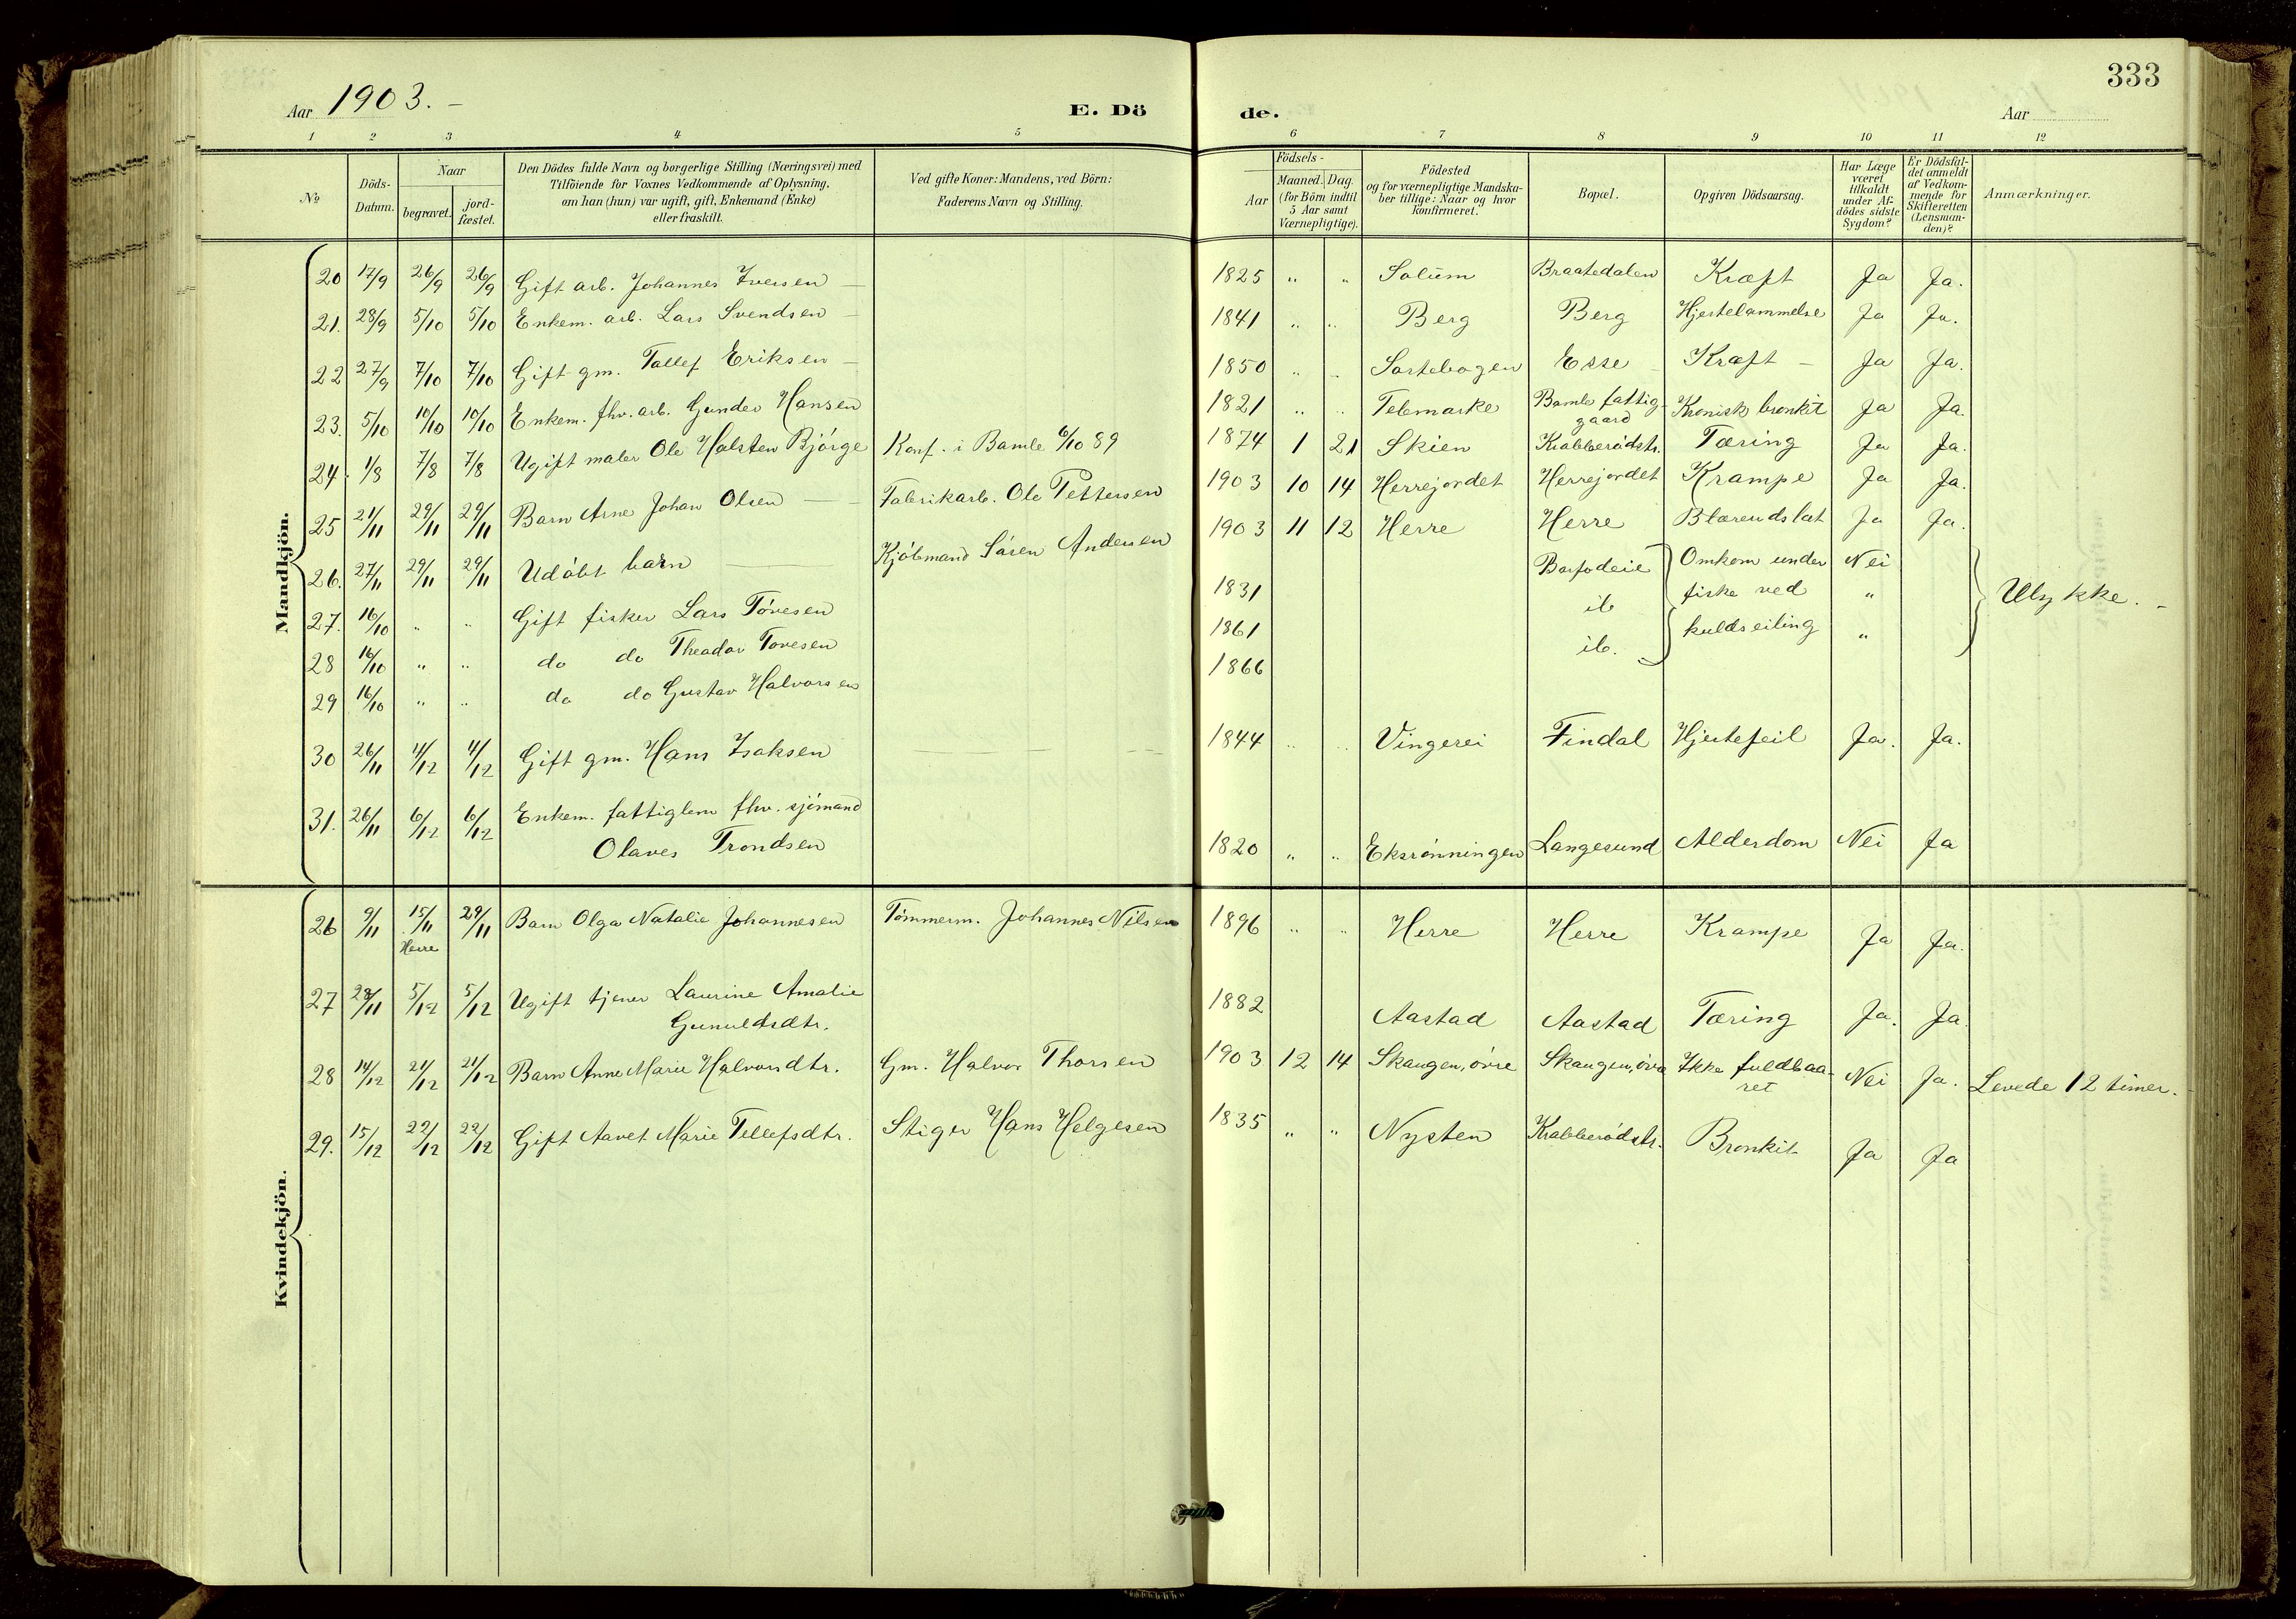 Aar 1903. –
E. Dö
de.
Aar
333
1 2 3 4 5 6 7 8 9 10 11 12
No
Döds-Datum.
Naar
begravet.
jord-fæstet.
Den Dödes fulde Navn og borgerlige Stilling (Næringsvei) med
Tilföiende for Voxnes Vedkommende af Oplysning,
om han (hun) var ugift, gift, Enkemand (Enke)
eller fraskilt.
Ved gifte Koner: Mandens, ved Börn:
Faderens Navn og Stilling.
Födsels-
Aar
Maaned. Dag.
(for Börn indtil
5 Aar samt
Værnepligtige).
Födested
og for værnepligtige Mandska-
ber tillige: Naar og hvor
konfirmeret.
Bopæl.
Opgiven Dödsaarsag.
Har Læge
været
tilkaldt
under Af-
dödes sidste
Sygdom?
Er Dödsfal-
det anmeldt
af Vedkom-
mende for
Skifteretten
(Lensman-
den)?
Anmærkninger.
Mandkjön.
20 17/9 26/9 26/9 Gift arb. Johannes Iversen – 1825 " " Solum Braatedalen Kræft Ja Ja.
21. 28/9 5/10 5/10 Enkem. arb. Lars Svendsen – 1841 " " Berg Berg Hjertelammelse Ja Ja.
22 27/9 7/10 7/10 Gift gm. Tallef Eriksen – 1850 " " Sortebogen Esse Kræft – Ja Ja.
23. 5/10 10/10 10/10 Enkem. fhv. arb. Gunder Hansen 1821 " " Telemarke Bamle fattig-
gaard Kronisk bronkit Ja Ja.
24. 1/8 7/8 7/8 Ugift maler Ole Halsten Bjørge Konf. i Bamle 6/10 89 1874 1 21 Skien Krabberødstr. Tæring Ja Ja.
25 21/11 29/11 29/11 Barn Arne Johan Olsen – Fabrikarb. Ole Pettersen 1903 10 14 Herrejordet Herrejordet Krampe Ja Ja.
26. 27/11 29/11 29/11 Udøbt barn – Kjøbmand Søren Andersen 1903 11 12 Herre Herre Blærendslat Ja Ja.
27. 16/10 " " Gift fisker Lars Tøvesen 1831 Barfodeie Omkom under Nei
28 16/10 " " do do Theodor Tovesen 1861 ib fiske ved " Ulykke. –
29 16/10 " " do do Gustav Halvorsen 1866 ib. kuldseiling "
30 26/11 4/12 4/12 Gift gm. Hans Isaksen 1844 " " Vingerei Findal Hjertefeil Ja. Ja.
31. 26/11 6/12 6/12 Enkem. fattiglem fhv. sjømand
Olaves Trondsen 1820 " " Eksrønningen Langesund Alderdom Nei Ja
Kvindekjön.
26 9/11 15/11 29/11 Barn Olga Natalie Johannesen Tømmerm. Johannes Nilsen 1896 " " Herre Herre Krampe Ja Ja.
Herre
27 28/11 5/12 5/12 Ugift tjener Laurine Amalie
Gunuldsdtr. 1882 Aastad Aastad Tæring Ja. Ja.
28 14/12 21/12 21/12 Barn Anne Marie Halvorsdtr. Gm. Halvor Thorsen 1903 12 14 Skaugen, øvre Skaugen, øvre Ikke fuldbaa-
ret Nei Ja. Levede 12 timer. –
29. 15/12 22/12 22/12 Gift Aavet Marie Tellefsdtr. Stiger Hans Helgesen 1835 " " Nysten Krabberødstr. Bronkit Ja Ja